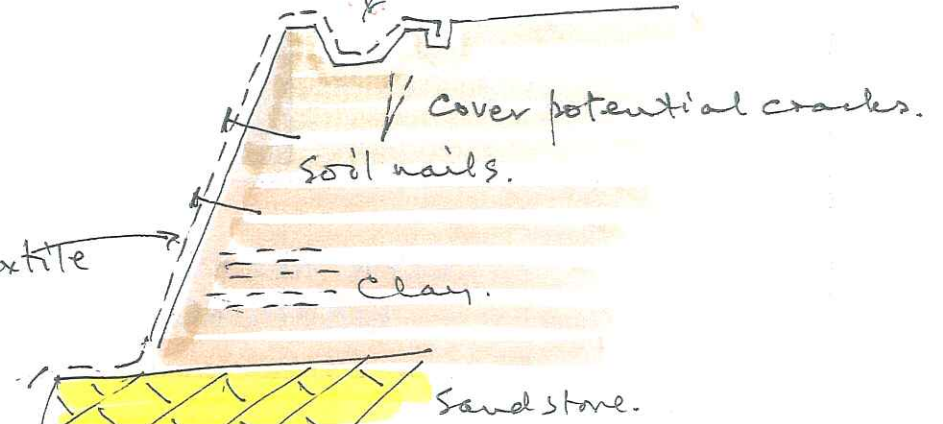 Cover potential cracks.
Soil nails.
Clay.
Sandstone.